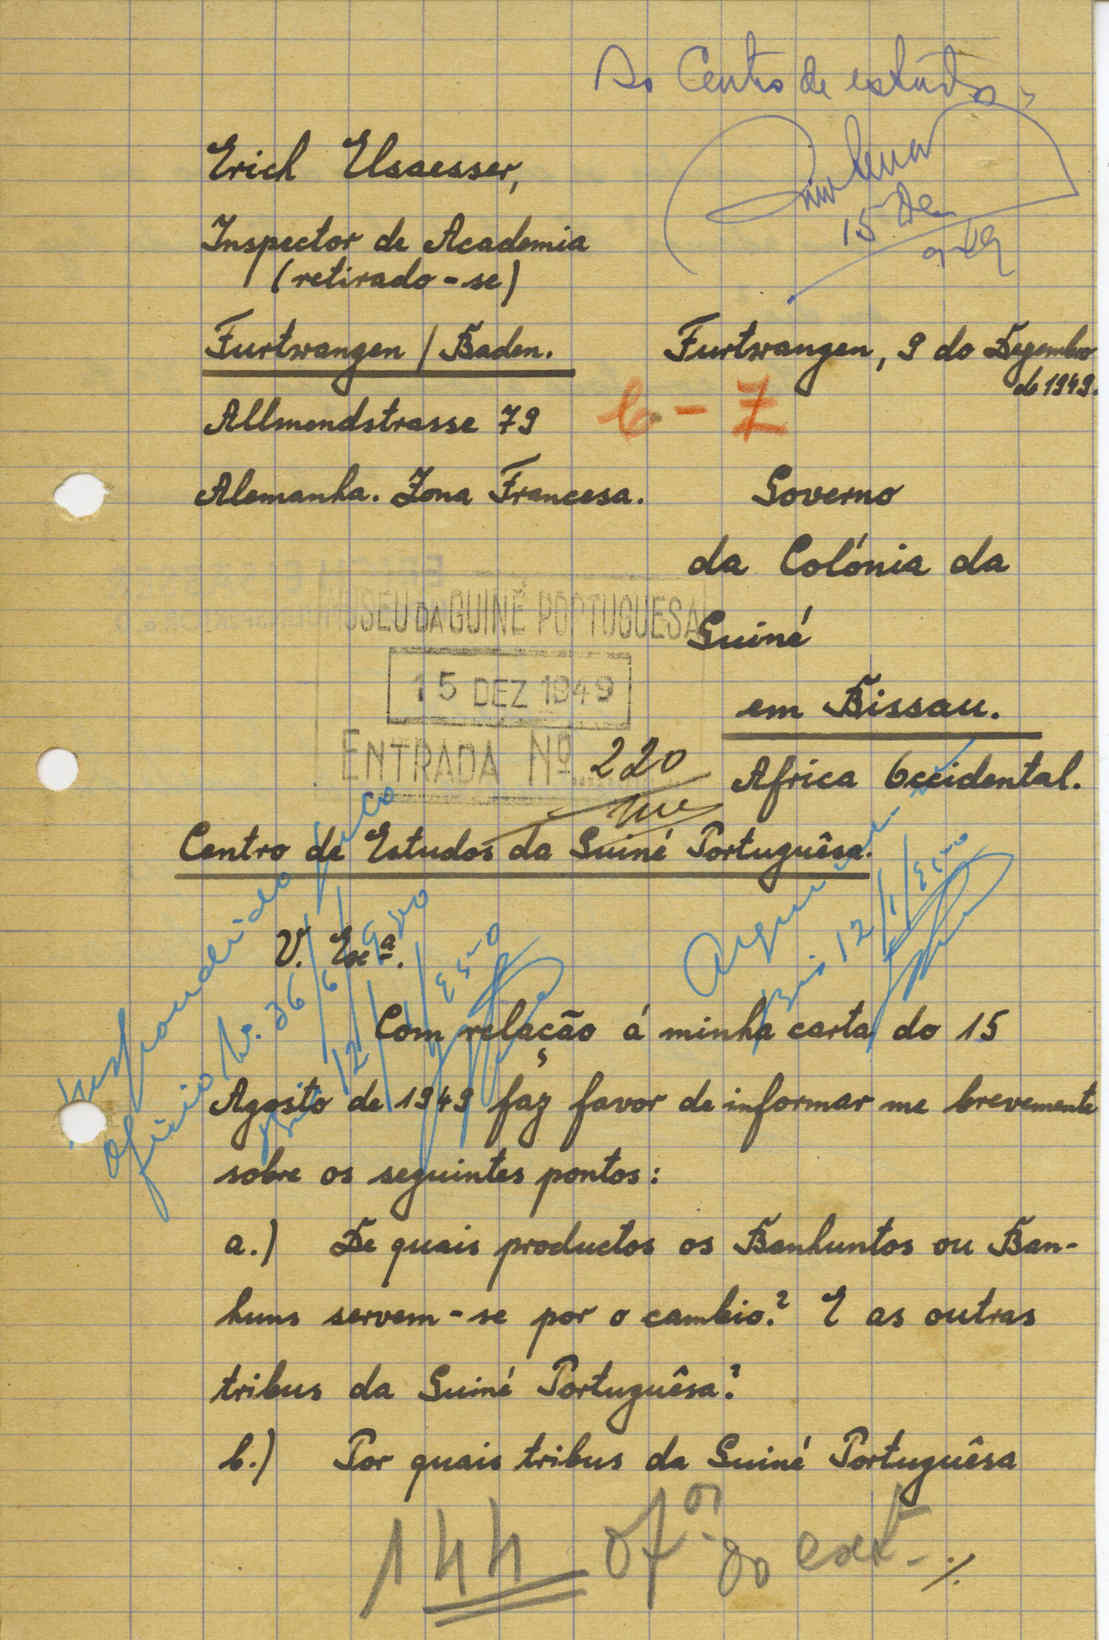 Ao Centro de estudos
15 De
949
Erich Elsaesser,
Inspector de Academia
(retirado-se)
Furtwangen / Baden.
Furtwangen, 9 do Dezembro
de 1949.
Allmendstrasse 79
C-7
Alemanha. Zona Francesa.
Governo
da Colónia da
Guiné
em Bissau.
Africa Occidental.
MUSEU DA GUINÉ PORTUGUESA
15 DEZ 1949
ENTRADA Nº 220
Centro de Estudos da Guiné Portuguêsa.
respondido
ofício Nr. 36/
12/1/950
Arquivar
12/1/950
V. Exª.
Com relação á minha carta do 15
Agosto de 1949 faz favor de informar me brevemente
sobre os seguintes pontos:
a.) De quais productos os Banhuntos ou Ban-
huns servem-se por o cambio? E as outras
tribus da Guiné Portuguêsa?
b.) Por quais tribus da Guiné Portuguêsa
144 of ext.